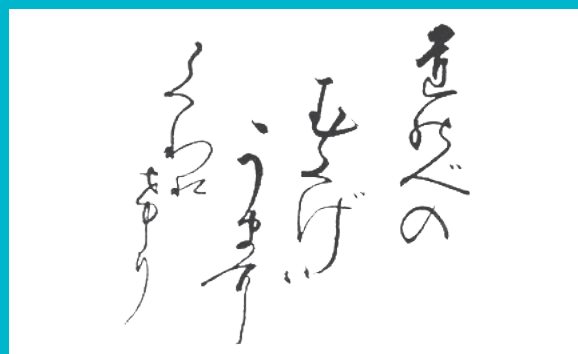 道のべの
むくげハ
うまに
くわれけり